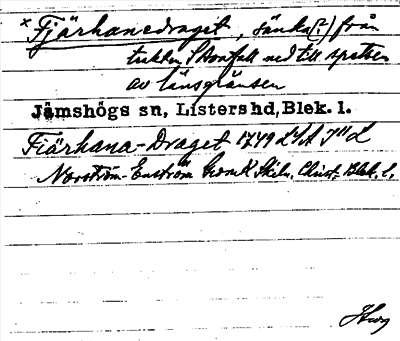 x Fjärhanedraget, sänka(?) från
trakten S Boafall ned till spetsen
av länsgränsen
Jämshögs sn, Listers hd, Blek. l.
Fiärhana-Draget 1749 LSA
Norström-Enström Christ. Blek. l.